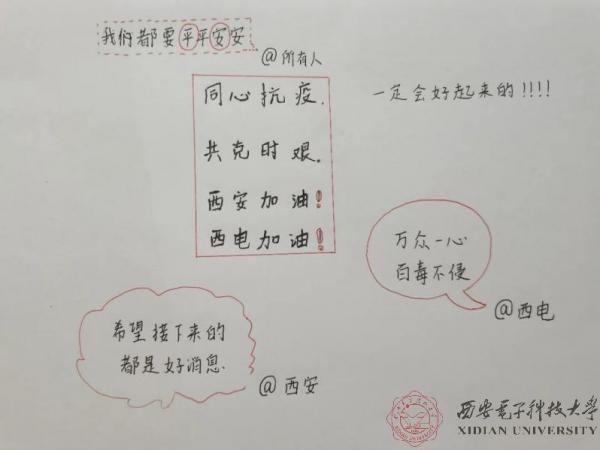 我们都要平平安安
@所有人
同心抗疫.
共克时艰.
西安加油!
西电加油!
一定会好起来的!!!!
万众一心
百毒不侵
@西电
希望接下来的
都是好消息.
@西安
西安电子科技大学
XIDIAN UNIVERSITY